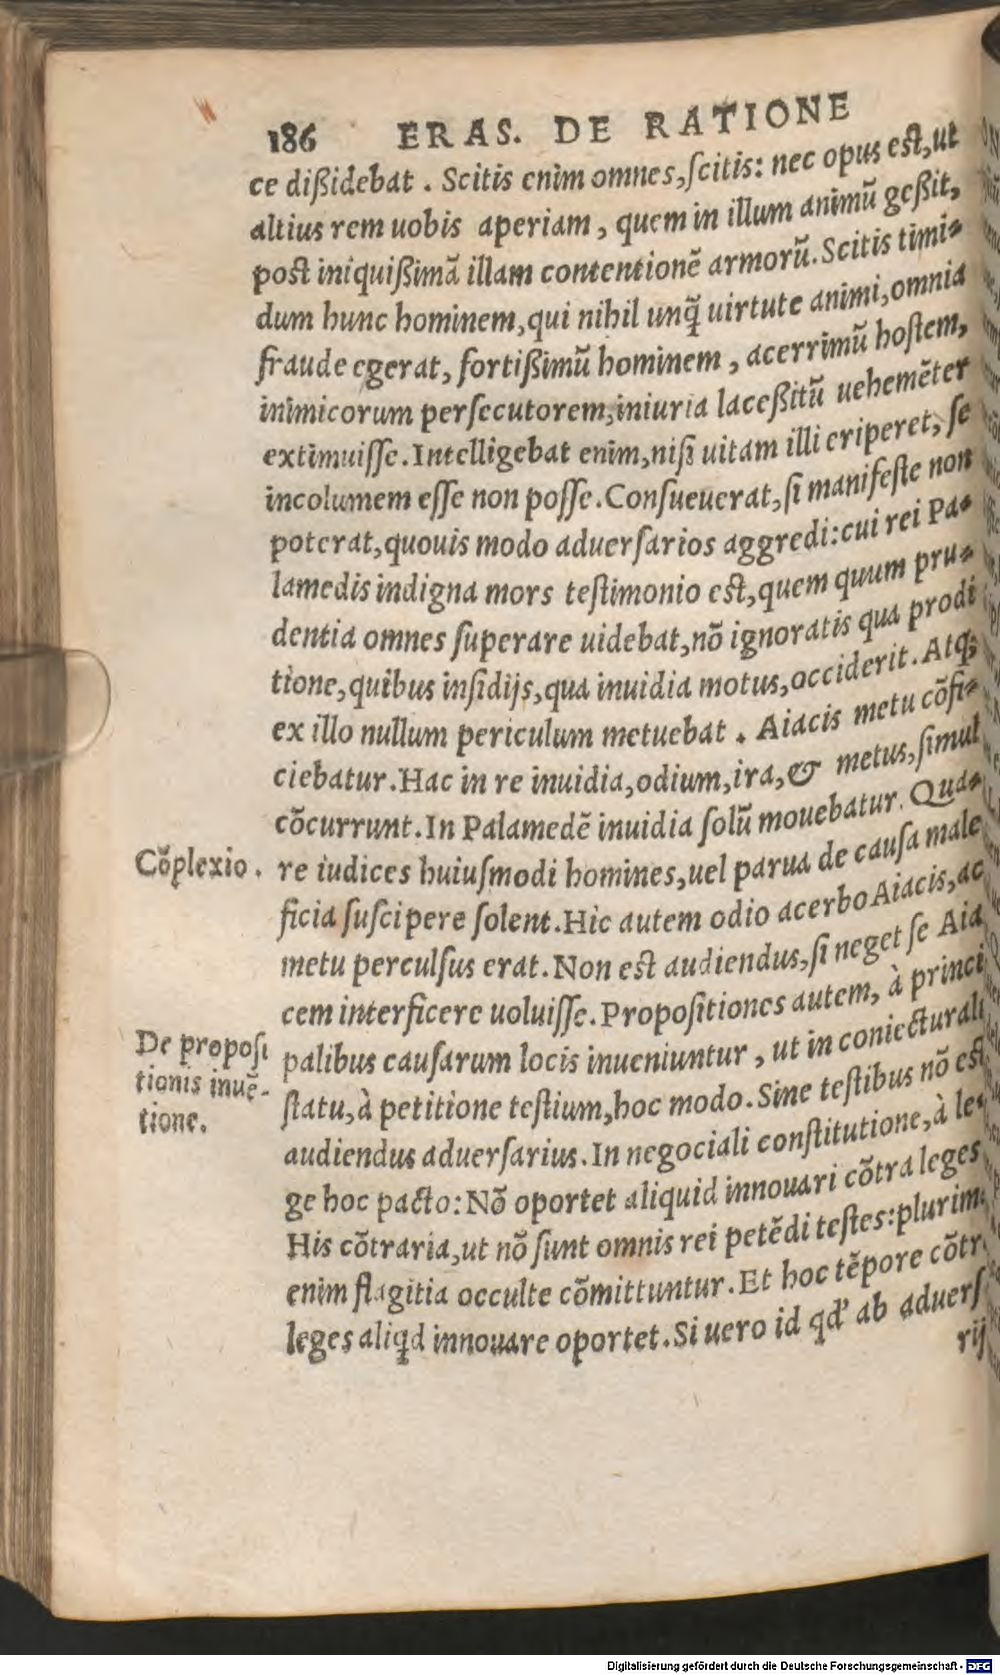 186 ERAS. DE RATIONE
ce dißidebat . Scitis enim omnes,ſcitis: nec opus est,ut
altius rem uobis aperiam , quem in illum animũ geßit,
post iniquißimã illam contentionẽ armorũ. Scitis timi-
dum hunc hominem,qui nihil unq̃ uirtute animi,omnia
fraude egerat, fortißimũ hominem , acerrimũ hoſtem,
inimicorum perſecutorem,iniuria laceßitũ uehemẽter
extimuiſſe. Intelligebat enim,niſi uitam illi eriperet, ſe
incolumem eſſe non poſſe. Conſueuerat,ſi manifeſte non
poterat,quouis modo aduerſarios aggredi: cui rei Pa-
lamedis indigna mors teſtimonio est,quem quum pru-
dentia omnes ſuperare uidebat,nõ ignoratis qua prodi
tione,quibus inſidijs,qua inuidia motus,occiderit. Atq;
ex illo nullum periculum metuebat . Aiacis metu cõfi-
ciebatur. Hac in re inuidia,odium,ira,& metus,ſimul
cõcurrunt. In Palamedẽ inuidia ſolũ mouebatur. Qua-
Cõplexio. re iudices huiuſmodi homines,uel parua de cauſa male
ficia ſuſcipere ſolent. Hic autem odio acerbo Aiacis,ac
metu perculſus erat. Non est audiendus,ſi neget ſe Aia
cem interficere uoluiſſe. Propoſitiones autem, à princi
De propoſi
tionis inuẽ-
tione.
palibus cauſarum locis inueniuntur , ut in coniecturali
ſtatu,à petitione teſtium,hoc modo. Sine teſtibus nõ est
audiendus aduerſarius. In negociali conſtitutione,à le-
ge hoc pacto: Nõ oportet aliquid innouari cõtra leges
His cõtraria,ut nõ ſunt omnis rei petẽdi teſtes: plurim
enim flagitia occulte cõmittuntur. Et hoc tẽpore cõtr
leges aliq̃d innouare oportet. Si uero id qd' ab aduerſ
rij
Digitalisierung gefördert durch die Deutsche Forschungsgemeinschaft - DFG